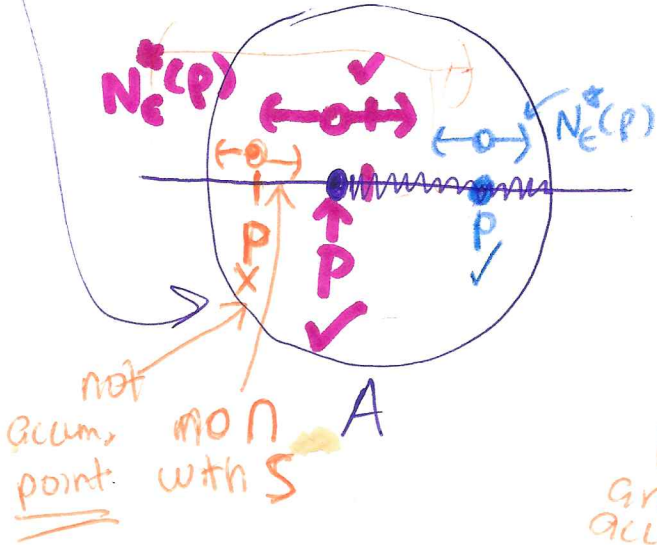 N*ε(p)
✓
N*ε(p)
p
x
p
✓
p
✓
not
accum,
point
no ∩
with S
A